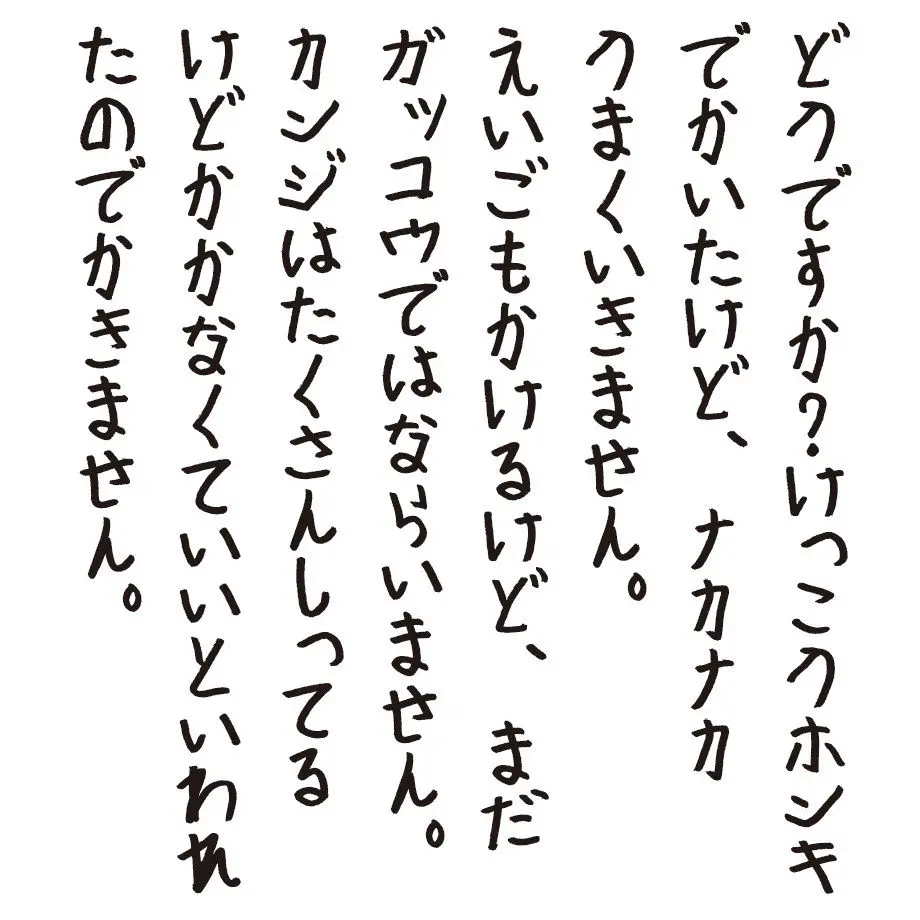 どうですか?けっこうホンキ
でかいたけど、 ナカナカ
うまくいきません。
えいごもかけるけど、 まだ
ガッコウではならいません。
カンジはたくさんしってる
けどかかなくていいといわれ
たのでかきません。